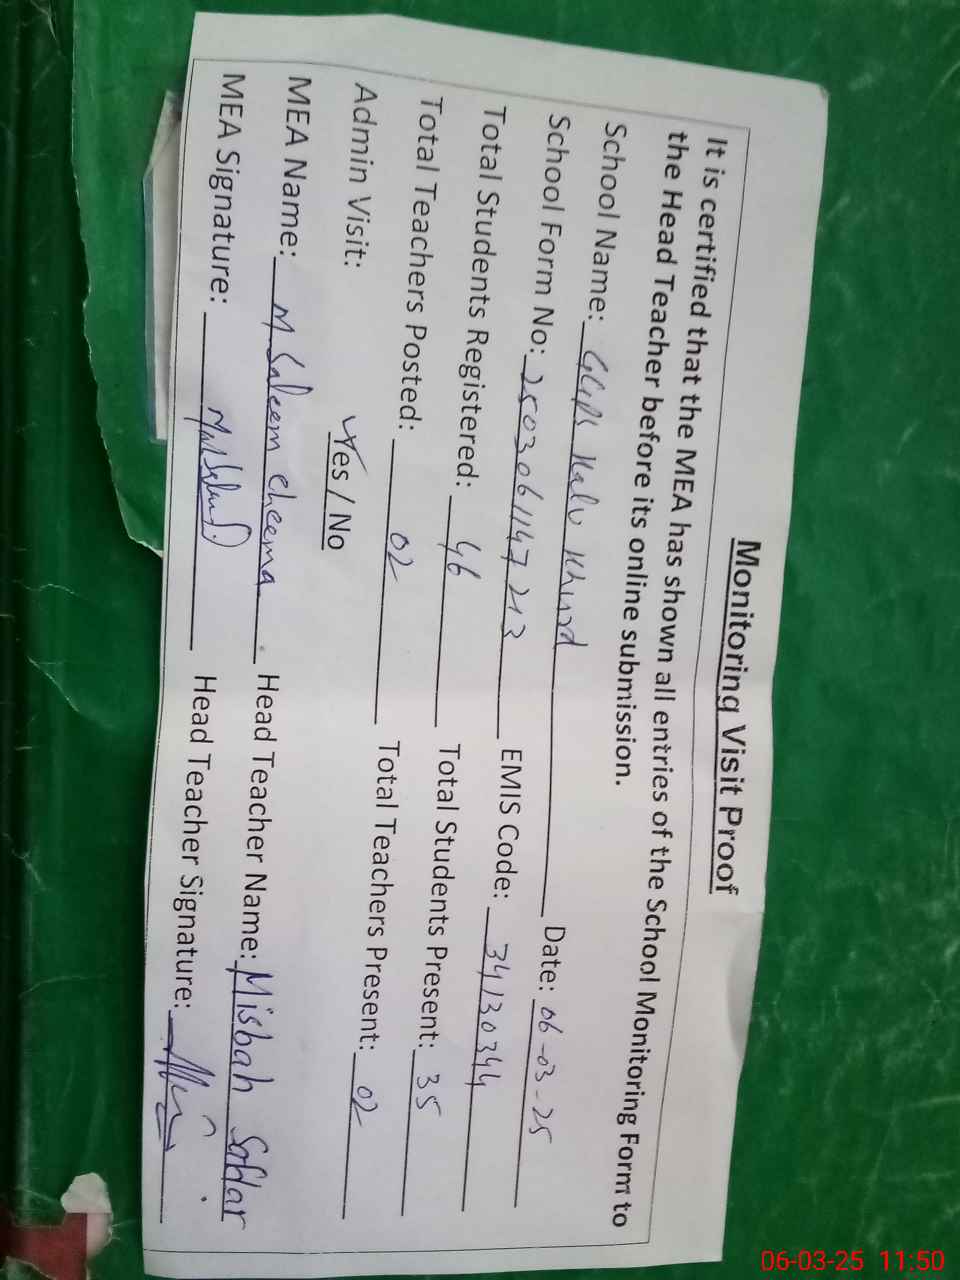 Monitoring Visit Proof
It is certified that the MEA has shown all entries of the School Monitoring Form to
the Head Teacher before its online submission.
School Name: GGPS Kalu Khurd Date: 06-03-25
School Form No: 2503061147213 EMIS Code: 34130344
Total Students Registered: 46 Total Students Present: 35
Total Teachers Posted: 02 Total Teachers Present: 02
Admin Visit: Yes / No
MEA Name: M Saleem Cheema Head Teacher Name: Misbah Safdar
MEA Signature: Head Teacher Signature:
06-03-25 11:50